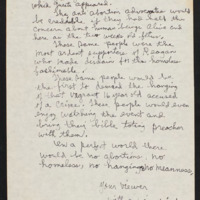 which Guest appeared.
The anti abortion advocates would
be credible if they had half the
concern about human beings alive and
here as the two weeks old fetus.
These same people were the
most ardent supporters of Reagan
who made disdain for the homeless
fashionable.
These same people would be
the first to demand the hanging
of that 16 year old accused
of a crime. These people would even
enjoy watching the event and
bring their bible toting preacher
with them.
In a perfect world there
would be no abortions, no
homeless, no hanging, no meanness,